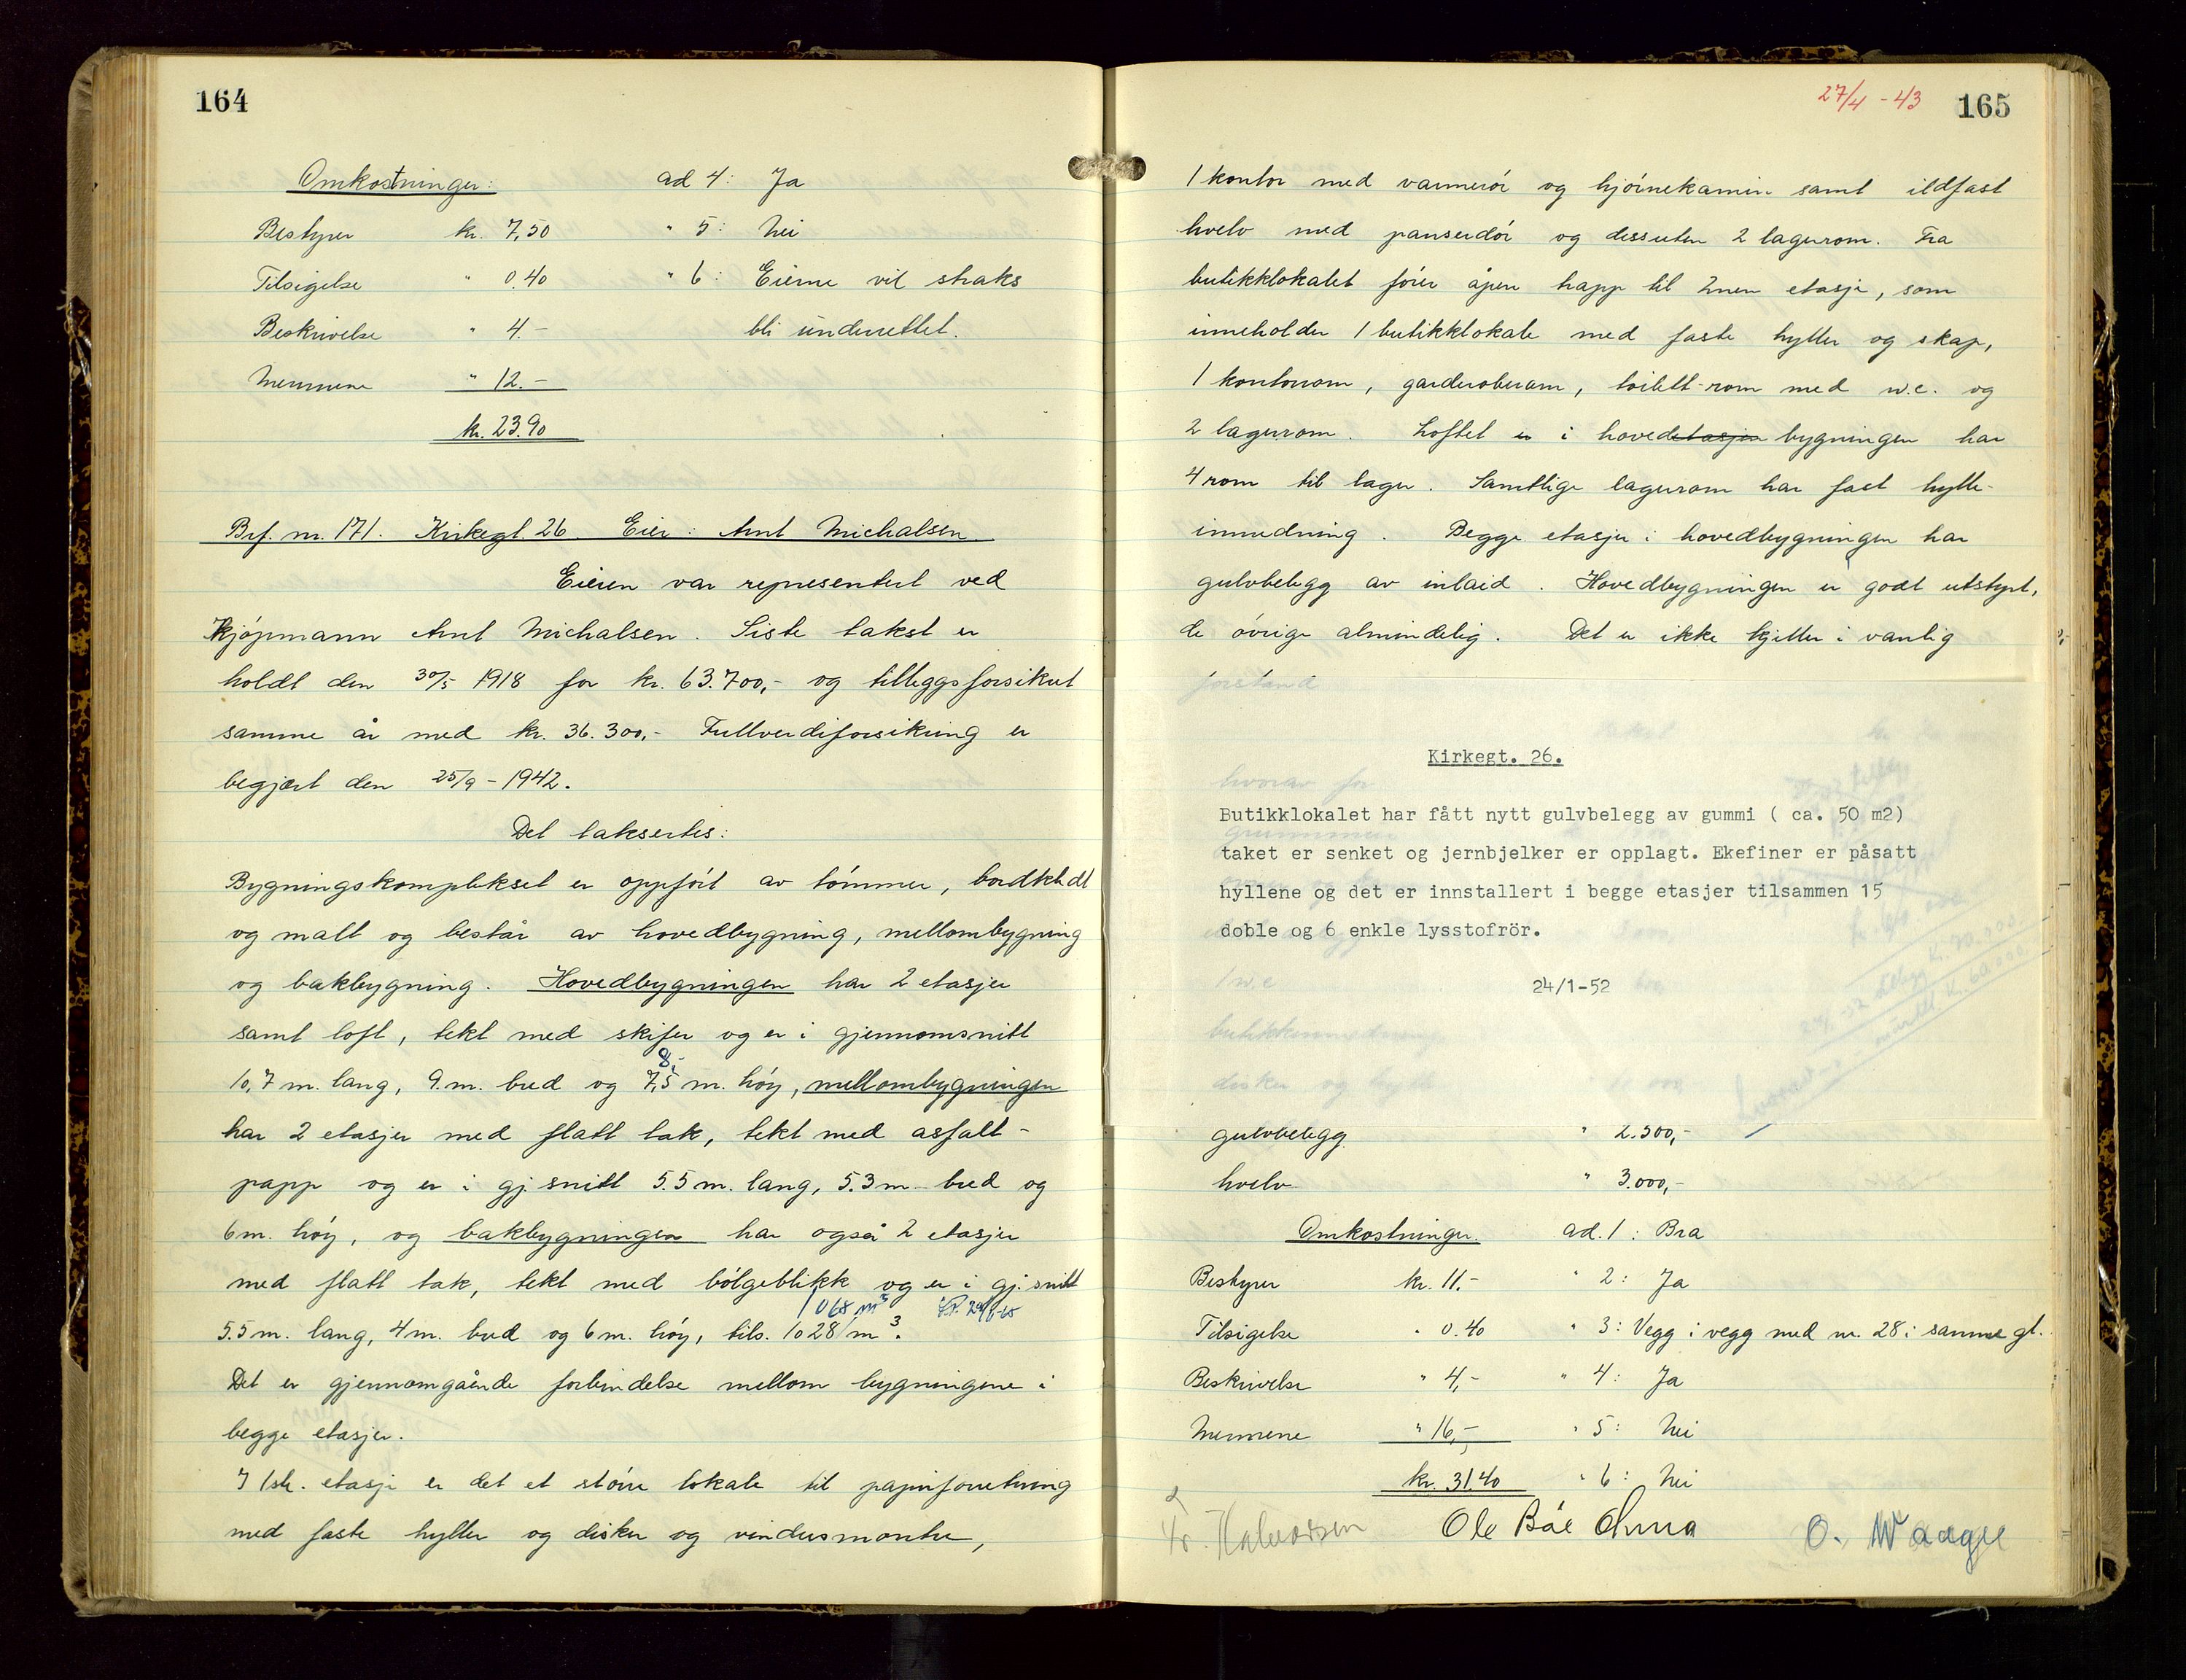 164
Omkostninger: ad 4: Ja
Bestyrer kr. 7,50 " 5: Nei
Tilsigelse " 0.40 " 6: Eierne vil straks
Beskrivelse " 4.- bli underrettet.
Mennene " 12.-
kr. 23.90
Brf. nr. 171. Kirkegt. 26. Eier: Arnt Michalsen.
Eieren var representert ved
Kjøpmann Arnt Michalsen. Siste takst er
holdt den 30/5 1918 for kr. 63.700,- og tilleggsforsikret
samme år med kr. 36.300,- Fullverdiforsikring er
begjært den 25/9 - 1942.
Det taksertes:
Bygningskomplekset er oppført av tømmer, bordkledt
og malt og består av hovedbygning, mellombygning
og bakbygning. Hovedbygningen har 2 etasjer
samt loft, tekt med skifer og er i gjennomsnitt
8,-
10,7 m. lang, 9.m. bred og 7,5 m. høy, mellombygningen
har 2 etasjer med flatt tak, tekt med asfalt-
papp og er i gj. snitt 5.5 m. lang, 5.3 m bred og
6 m. høy, og bakbygningen har også 2 etasjer
med flatt tak, tekt med bølgeblikk og er i gj. snitt
1068 m³
5.5 m. lang, 4 m. bred og 6 m. høy, tils. 1028 m³.
Det er gjennomgående forbindelse mellom bygningene i
begge etasjer.
I 1ste. etasje er det et større lokale til papirforretning
med faste hyller og disker og vindusmontre,
27/4 - 43 165
1 kontor med varmerør og hjørnekamin samt ildfast
hvelv med panserdør og dessuten 2 lagerrom. Fra
butikklokalet fører åpen trapp til 2nen etasje, som
inneholder 1 butikklokale med faste hyller og skap,
1 kontorrom, garderoberom, toilett-rom med w.c. og
2 lagerrom. Loftet er i hovedetasjen bygningen har
4 rom til lager. Samtlige lagerrom har fast hylle-
innredning. Begge etasjer i hovedbygningen har
gulvbelegg av inlaid. Hovedbygningen er godt utstyrt,
de øvrige almindelig. Det er ikke kjeller i vanlig
forstand
Kirkegt. 26.
Butikklokalet har fått nytt gulvbelegg av gummi ( ca. 50 m2)
taket er senket og jernbjelker er opplagt. Ekefiner er påsatt
hyllene og det er innstallert i begge etasjer tilsammen 15
doble og 6 enkle lysstofrör.
24/1-52
gulvbelegg " 2.500,-
hvelv " 3.000,-
Omkostninger. ad. 1: Bra
Bestyrer kr. 11.- " 2: Ja
Tilsigelse " 0.40 " 3: Vegg i vegg med nr. 28 i samme gt.
Beskrivelse " 4,- " 4: Ja
Mennene " 16,- " 5: Nei
kr. 31.40 " 6: Nei
Halvorsen Ole Bøe O. Waage